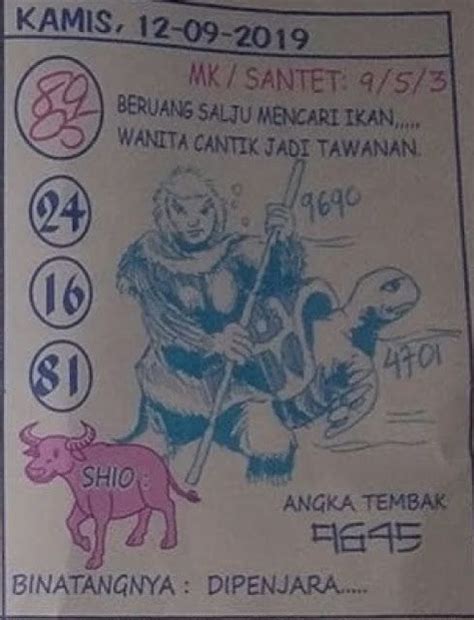 KAMIS, 12-09-2019
MK / SANTET: 9/5/3
89
05
BERUANG SALJU MENCARI IKAN,,,,,
WANITA CANTIK JADI TAWANAN.
24
9690
16
4701
81
SHIO :
ANGKA TEMBAK
9645
BINATANGNYA : DIPENJARA.....